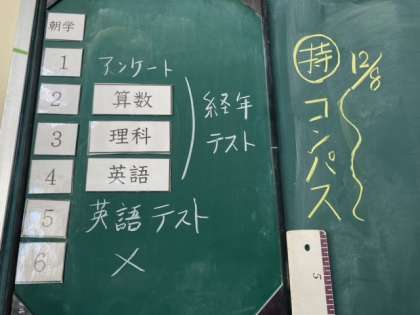 朝学
1 アンケート
2 算数
3 理科
4 英語
経年
テスト
5 英語テスト
6 ×
持 12/8~
コンパス
5